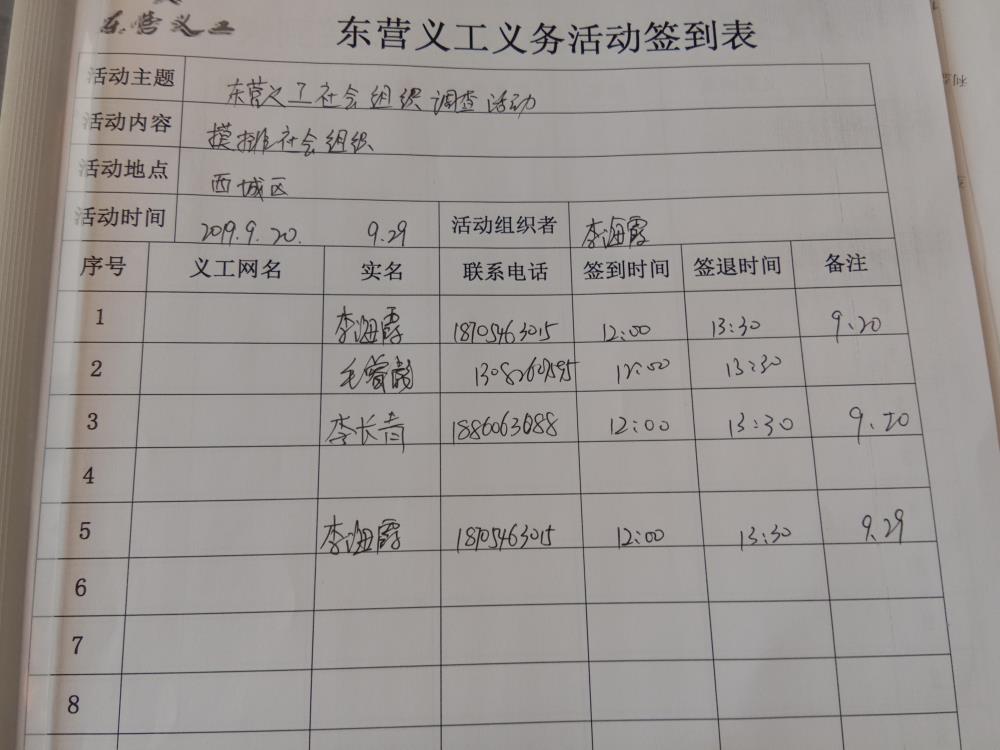 东营义工
东营义工义务活动签到表
活动主题 东营义工社会组织调查活动
活动内容 摸排社会组织
活动地点 西城区
活动时间 2019.9.20. 9.29 活动组织者 李海霞
序号 义工网名 实名 联系电话 签到时间 签退时间 备注
1 李海霞 18705463015 12:00 13:30 9.20
2 12:00 13:30
3 李长青 12:00 13:30 9.20
4
5 李海霞 18705463015 12:00 13:30 9.29
6
7
8